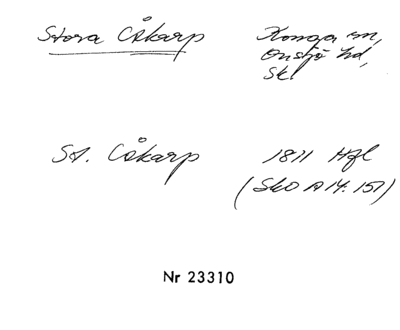 Stora Åkarp Konga sn,
Onsjö hd,
Skl
St. Åkarp 1811 Hfl
(SkO A 14:157)
Nr 23310